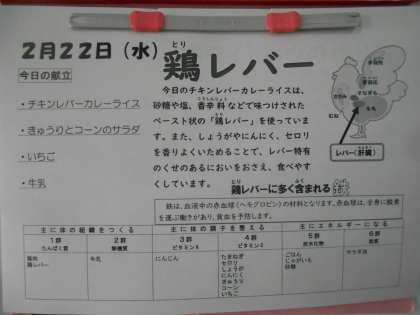 2月22日（水）
とり
鶏レバー
今日の献立
・チキンレバーカレーライス
・きゅうりとコーンのサラダ
・いちご
・牛乳
今日のチキンレバーカレーライスは、
砂糖や塩、香辛料などで味つけされた
ペースト状の「鶏レバー」を使っていま
す。また、しょうがやにんにく、セロリ
を香りよくいためることで、レバー特有
のくせのあるにおいをおさえ、食べやす
くしています。
レバー（肝臓）
鶏レバーに多く含まれる
鉄は、血液中の赤血球（ヘモグロビン）の材料となります。赤血球は、全身に酸素
を運ぶ働きがあり、貧血を予防します。
主に体の組織をつくる 主に体の調子を整える 主にエネルギーになる
1群 2群 3群 4群 5群 6群
たんぱく質 無機質 ビタミンA ビタミンC 炭水化物 脂質
鶏肉 牛乳 にんじん たまねぎ ごはん サラダ油
鶏レバー セロリ じゃがいも
しょうが 砂糖
にんにく
きゅうり
コーン
いちご